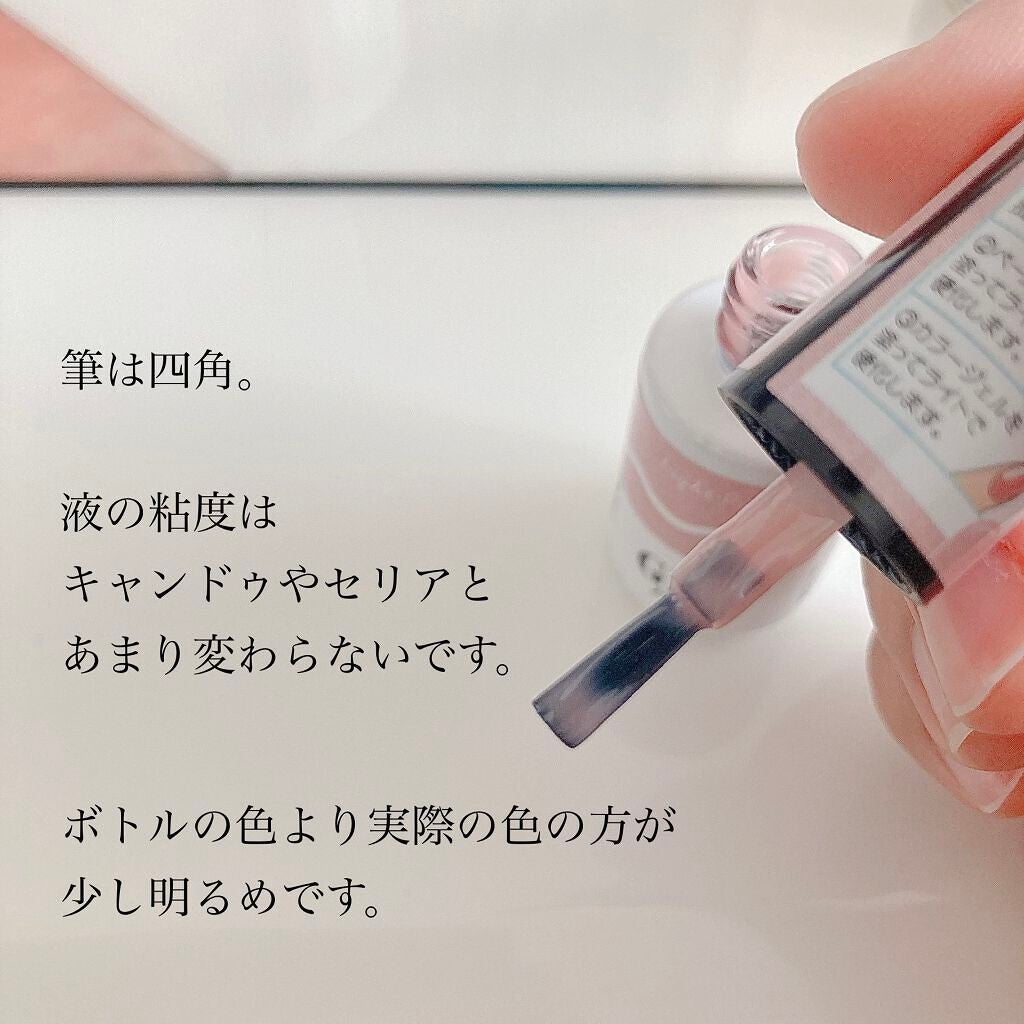 筆は四角。
液の粘度は
キャンドゥやセリアと
あまり変わらないです。
ボトルの色より実際の色の方が
少し明るめです。
②ベー
塗ってラ
硬化します。
③カラージェルを
塗ってライトで
硬化します。